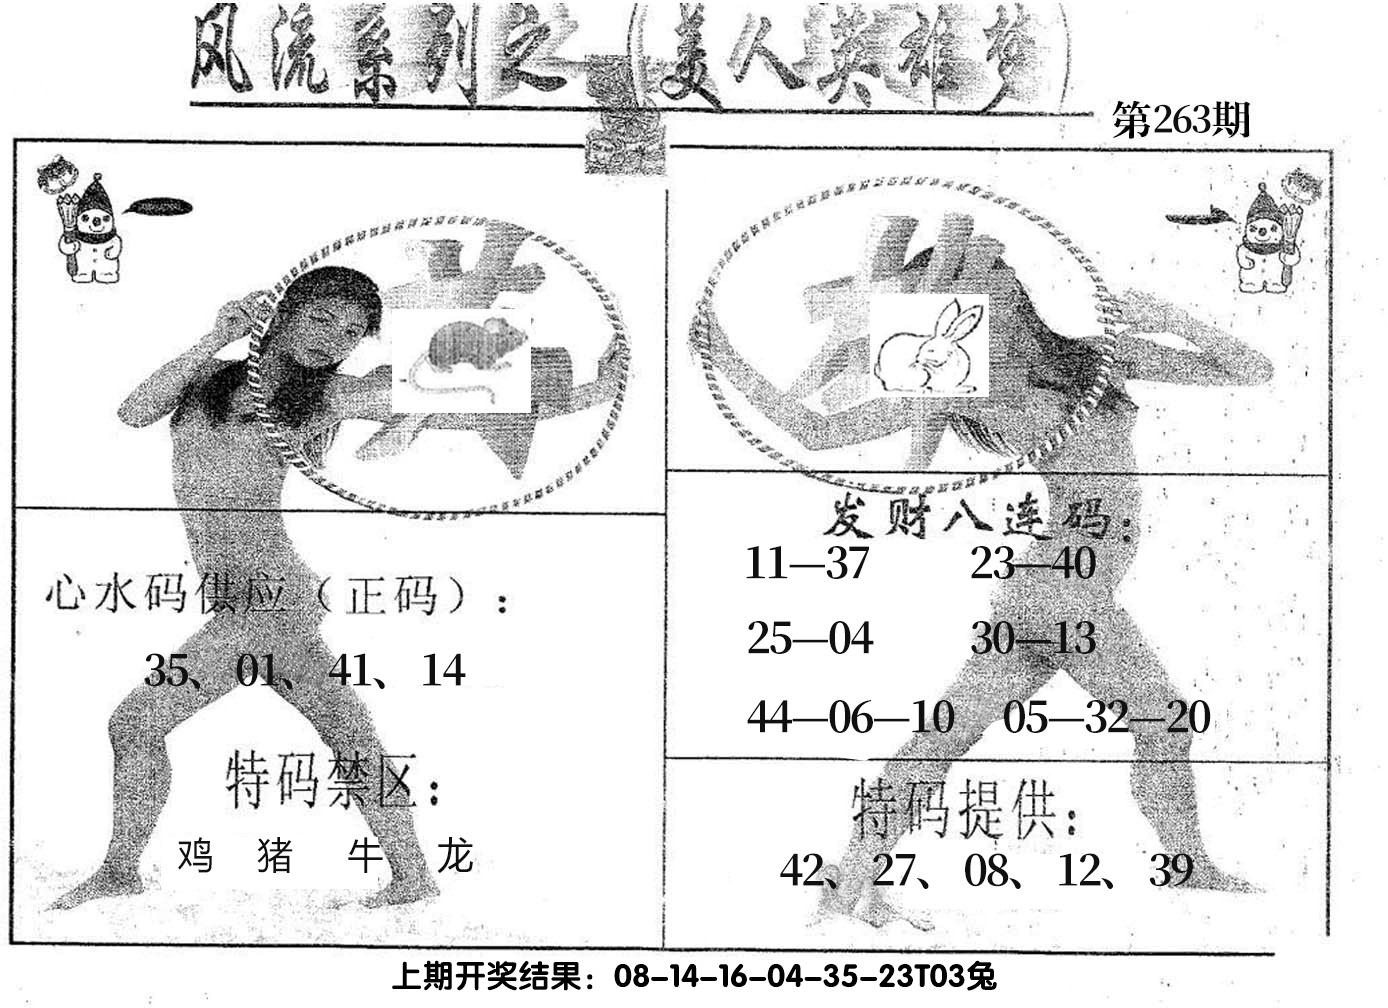 风流系列之 美人英雄梦
第263期
心水码供应（正码）：
35、01、41、14
特码禁区：
鸡 猪 牛 龙
发财八连码：
11—37 23—40
25—04 30—13
44—06—10 05—32—20
特码提供：
42、27、08、12、39
上期开奖结果：08-14-16-04-35-23T03兔